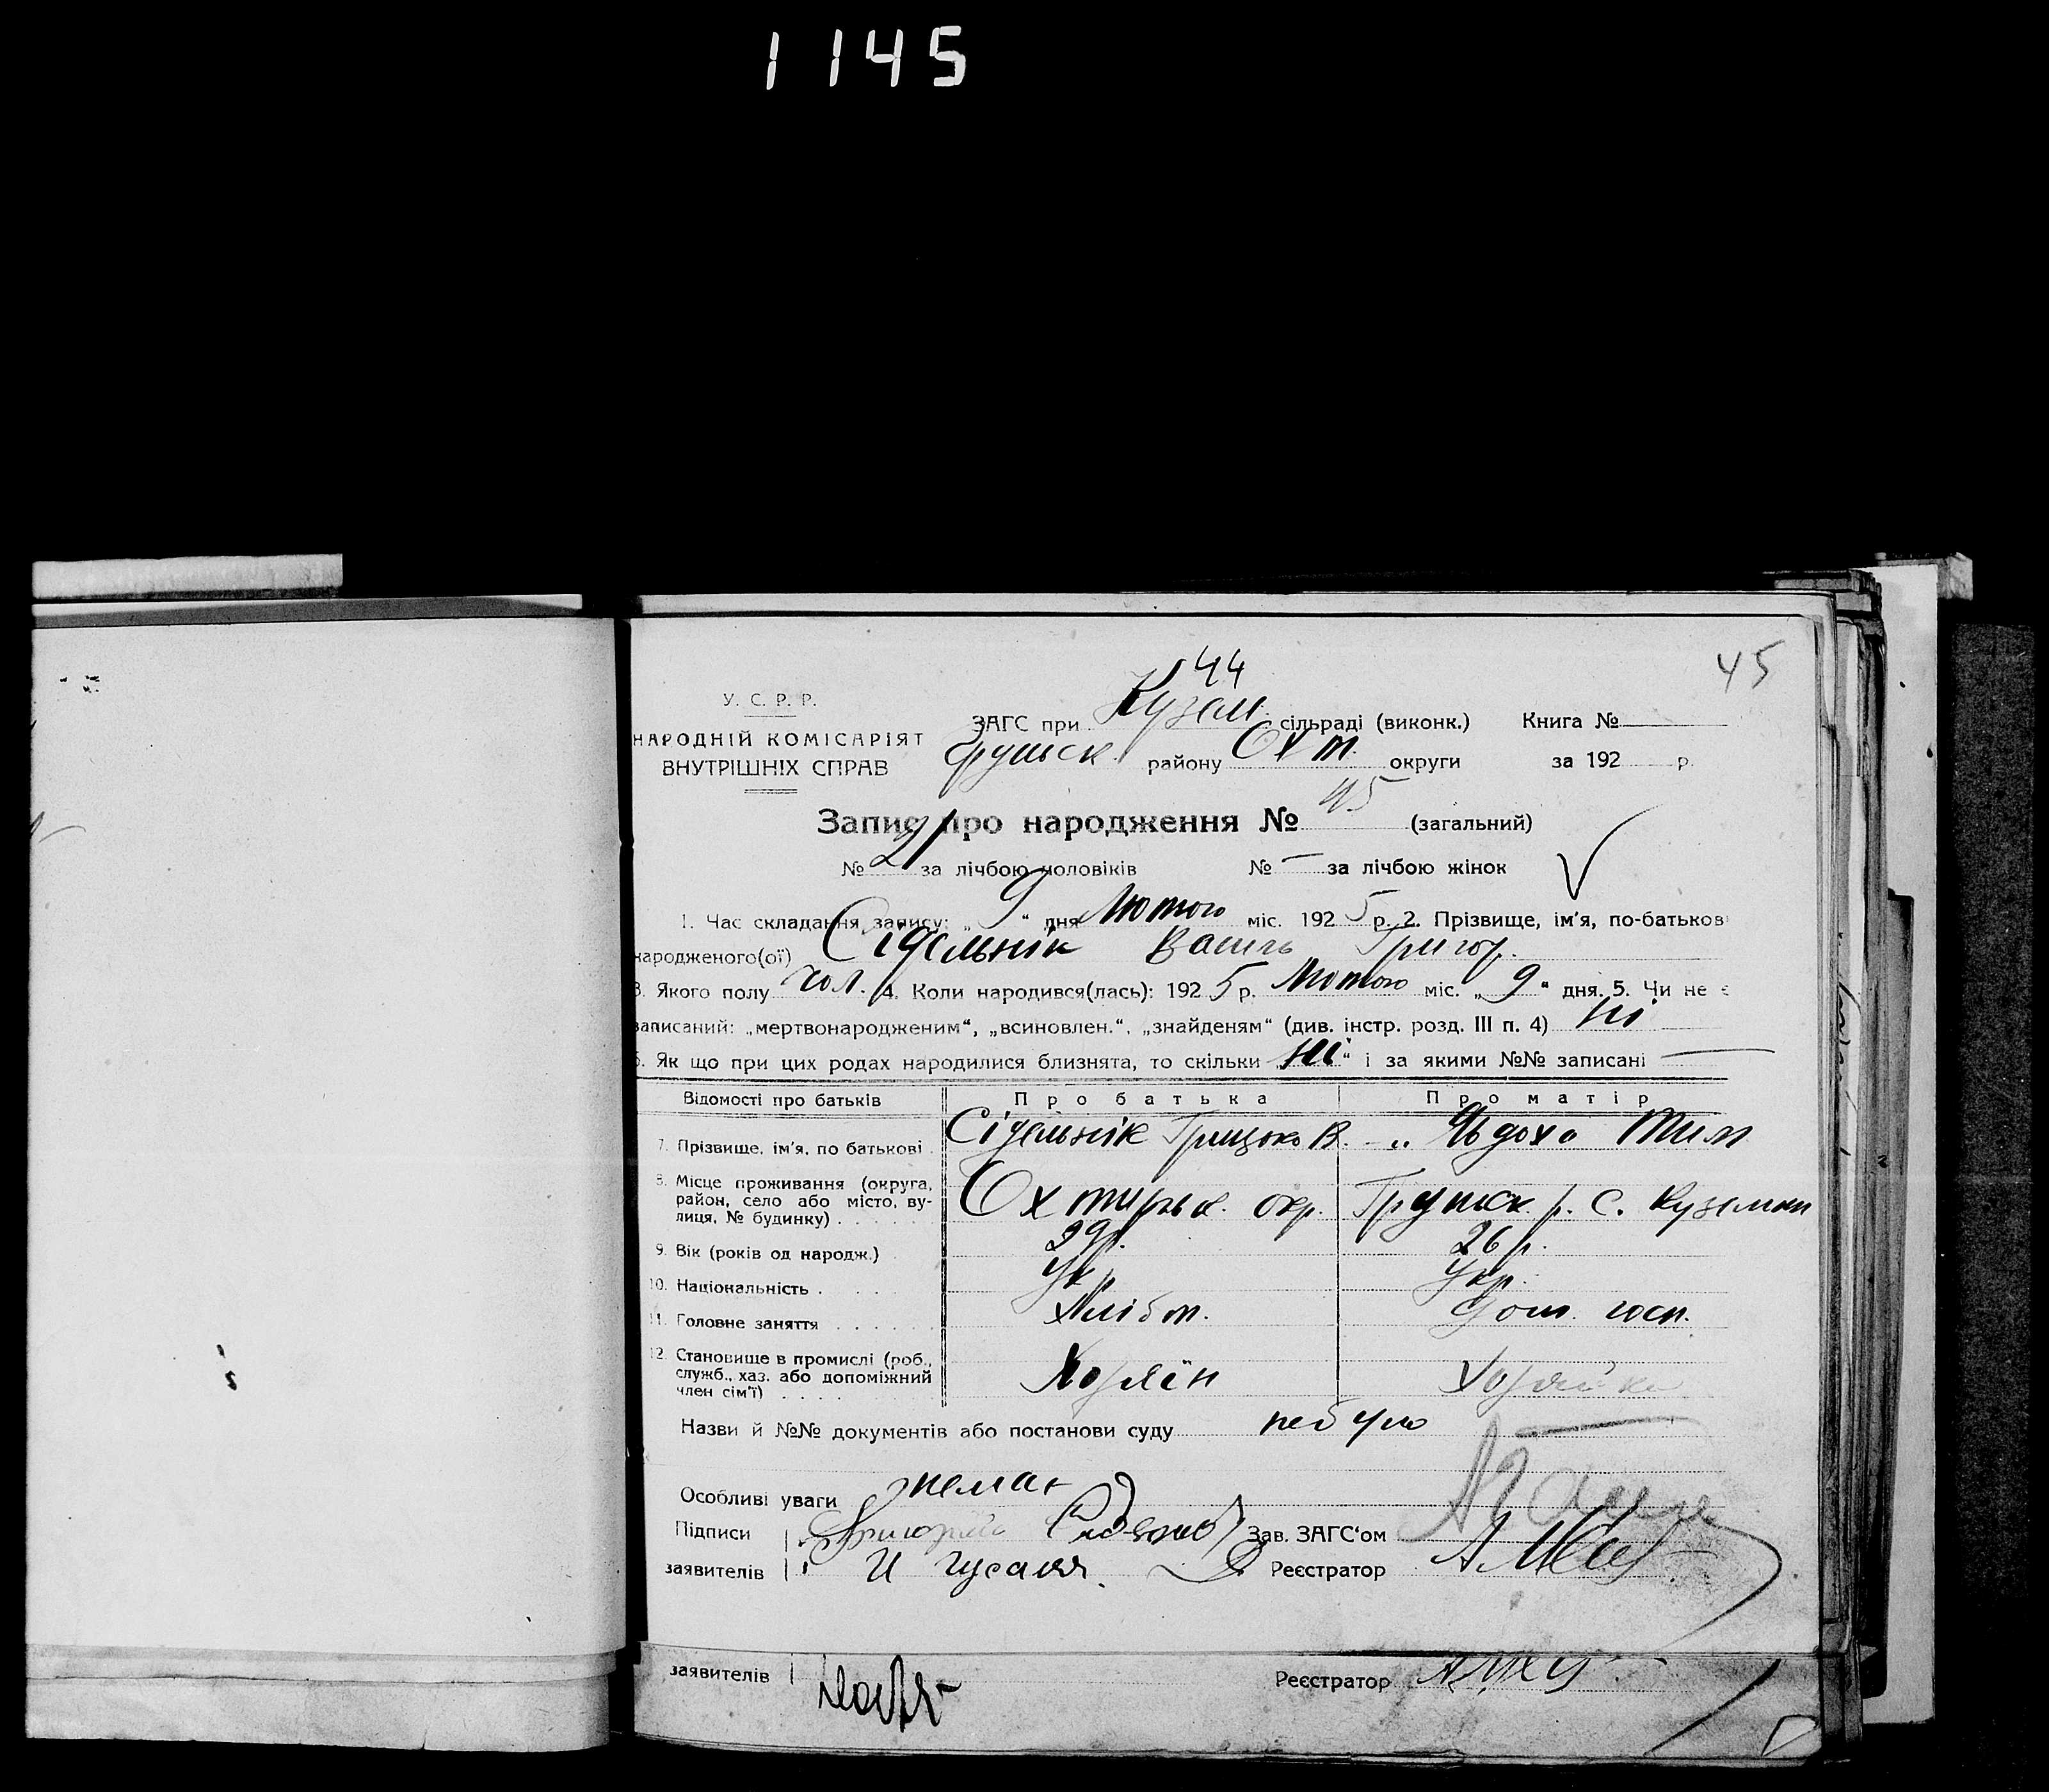 1145
44
45
У. С. Р. Р.
НАРОДНІЙ КОМІСАРІЯТ
ВНУТРІШНІХ СПРАВ
ЗАГС при Кузем. сільраді (виконк.) Книга №
Грунск. району Охт. округи за 192 р.
Запис про народження № 45 (загальний)
№ 21 за лічбою чоловіків № — за лічбою жінок
1. Час складання запису: „ 9 “ дня Лютого міс. 1925 р. 2. Прізвище, ім'я, по-батькові
народженого(ої) Сідельнік Василь Григор.
3. Якого полу чол. 4. Коли народився(лась): 1925 р. Лютого міс. „ 9 “ дня. 5. Чи не є
записаний: „мертвонародженим“, „всиновлен.“, „знайденям“ (див. інстр. розд. III п. 4) Ні
6. Як що при цих родах народилися близнята, то скільки „ Ні “ і за якими №№ записані —
Відомості про батьків Про батька Про матір
7. Прізвище, ім'я, по батькові Сідельнік Грицько В. — „ Явдоха Тим
8. Місце проживання (округа, район, село або місто, вулиця, № будинку) Охтирськ. окр. Грунск. р. С. Куземин
9. Вік (років од народж.) 29 р. 26 р.
10. Національність Укр. Укр.
11. Головне заняття Хлібоп. Дом. госп.
12. Становище в промислі (роб., служб., хаз. або допоміжний член сім'ї) Хозяїн Хозяйка
Назви й №№ документів або постанови суду не було
Особливі уваги немає
Підписи Григорій Зав. ЗАГС'ом
заявителів И Реєстратор
заявителів Реєстратор